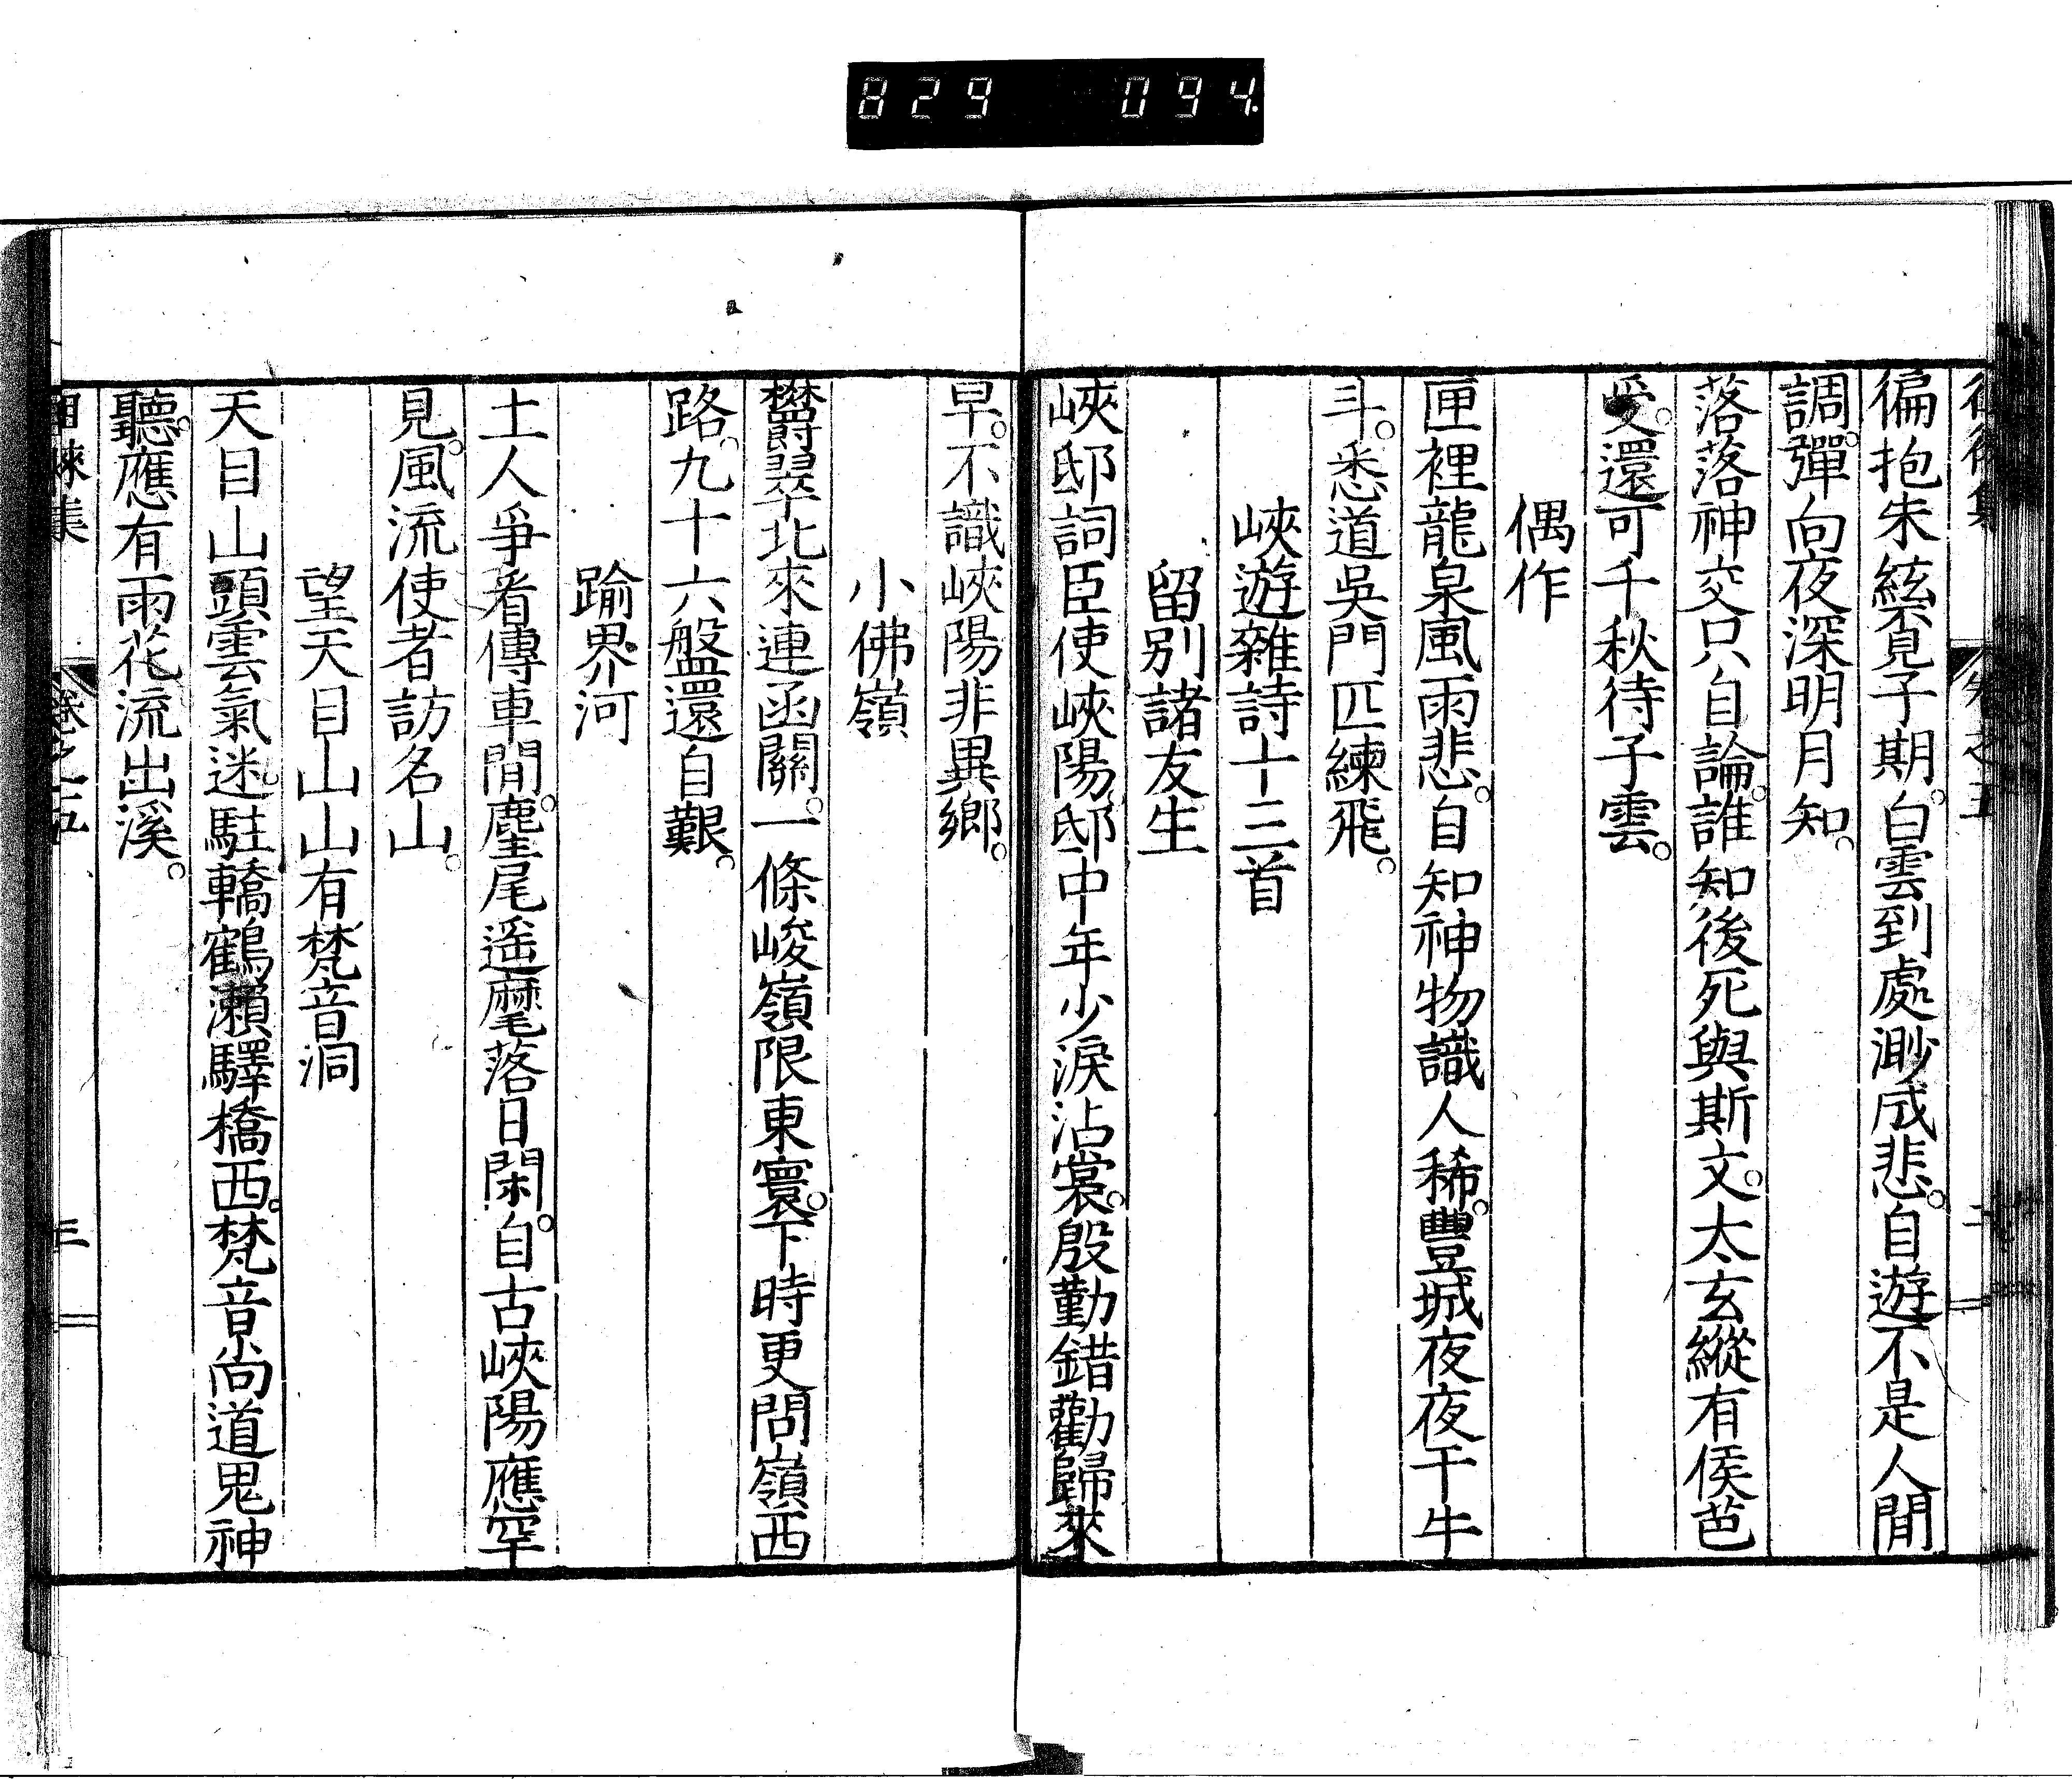 829 094
徧抱朱絃覓子期。白雲到處渺成悲。自遊不是人間
調。彈向夜深明月知。
落落神交只自論。誰知後死與斯文。太玄縱有侯芭
受。還可千秋待子雲。
偶作
匣裡龍泉風雨悲。自知神物識人稀。豐城夜夜干牛
斗。悉道吳門匹練飛。
峽遊雜詩十三首
留別諸友生
峽邸詞臣使峽陽。邸中年少淚沾裳。殷勤錯勸歸來
早。不識峽陽非異鄉。
小佛嶺
欝翠北來連函關。一條峻嶺限東寰。下時更問嶺西
路。九十六盤還自艱。
踰界河
土人爭看傳車間。麈尾遥麾落日閑。自古峽陽應罕
見。風流使者訪名山。
望天目山山有梵音洞
天目山頭雲氣迷。駐轎鶴瀨驛橋西。梵音尚道鬼神
聽。應有雨花流出溪。
卷之五
三